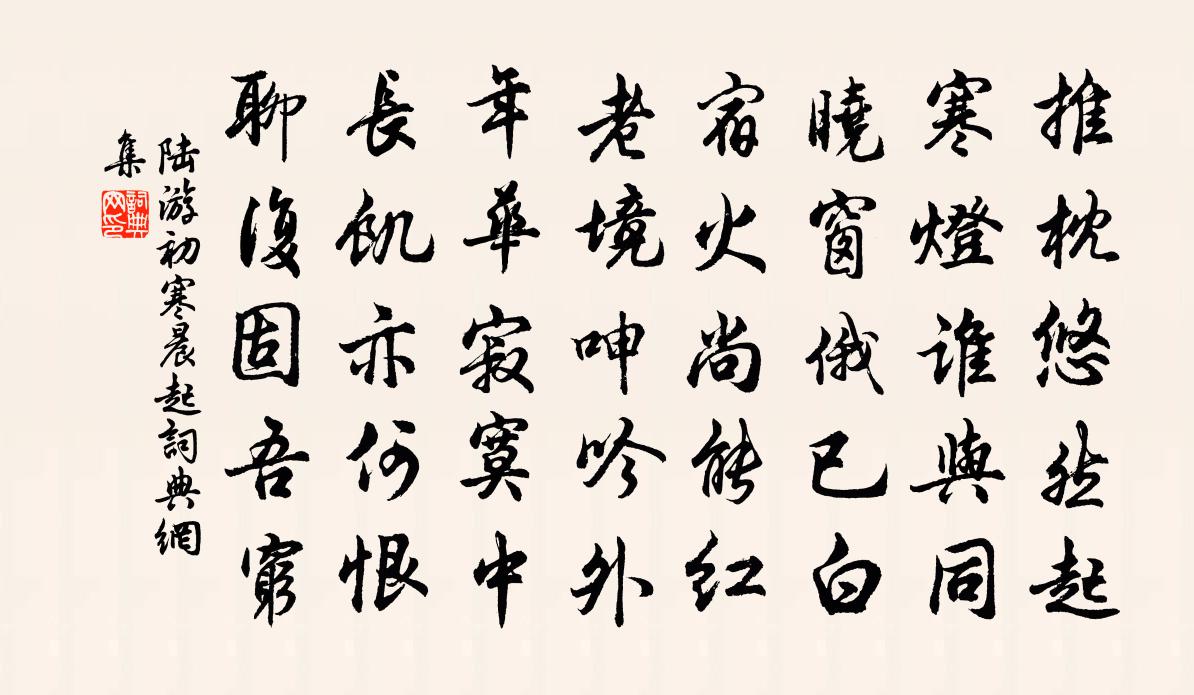 推枕悠然起
寒燈誰與同
曉窗俄已白
宿火尚能紅
老境呻吟外
年華寂寞中
長飢亦何恨
聊復固吾窮
陸游初寒晨起詞典網
集
詞典
网印